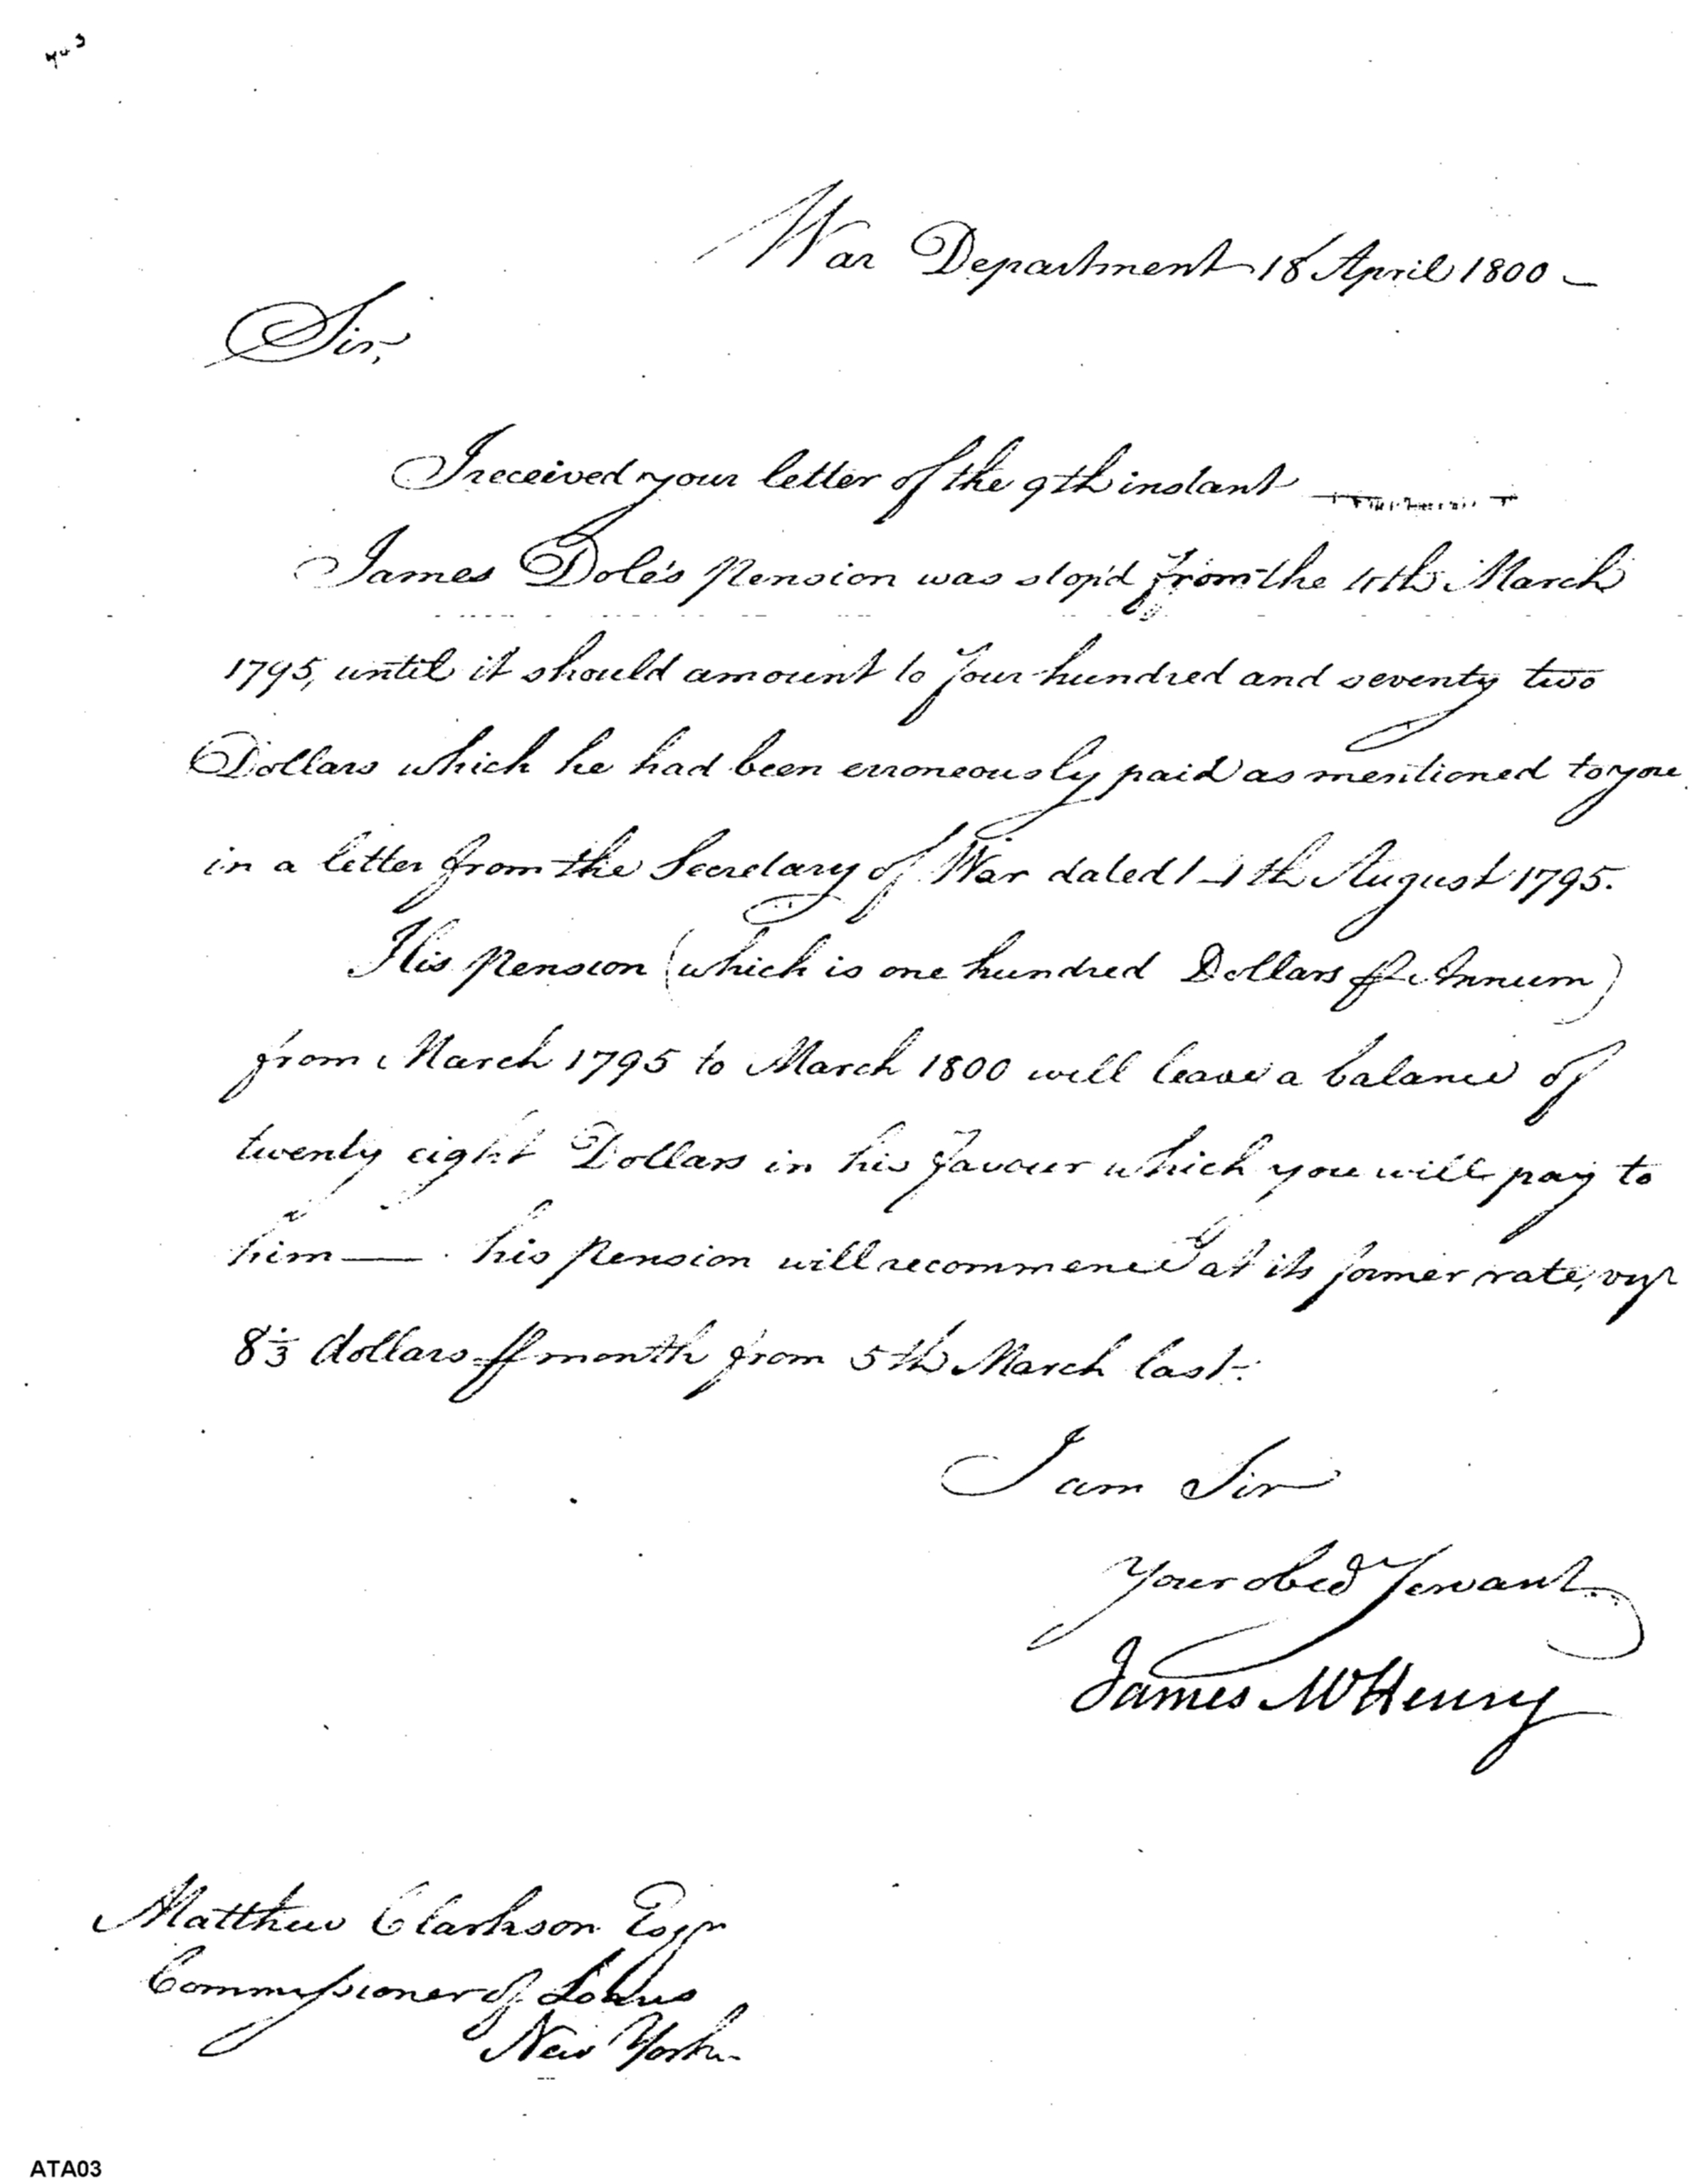 War Department 18 April 1800 —
Sir,
I received your letter of the 9th instant
James Dole's pension was stop'd from the 4th March
1795, until it should amount to four hundred and seventy two
Dollars which he had been erroneously paid as mentioned to you
in a letter from the Secretary of War dated 14th August 1795.
His pension (which is one hundred Dollars ⅌ Annum)
from March 1795 to March 1800 will leave a balance of
twenty eight Dollars in his favour which you will pay to
him — his pension will recommence at its former rate, vizt
8⅓ dollars ⅌ month from 5th March last.
I am Sir
Your obed Servant
James McHenry
Matthew Clarkson Esqr
Commissioner of Loans
New York
ATA03